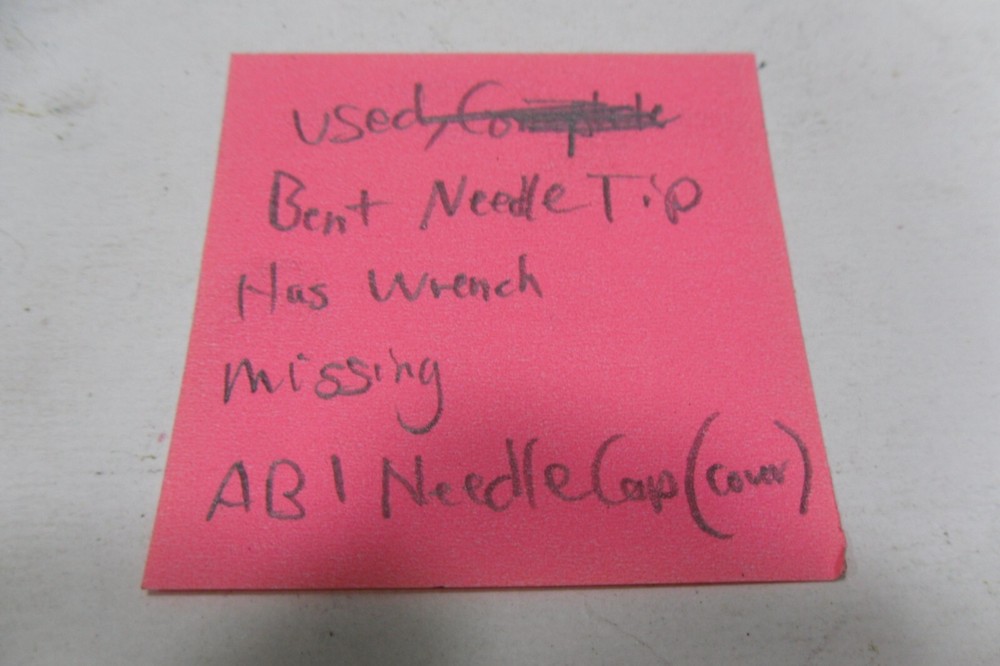 Used, Complete
Bent Needle Tip
Has Wrench
missing
AB 1 Needle Cap (cover)